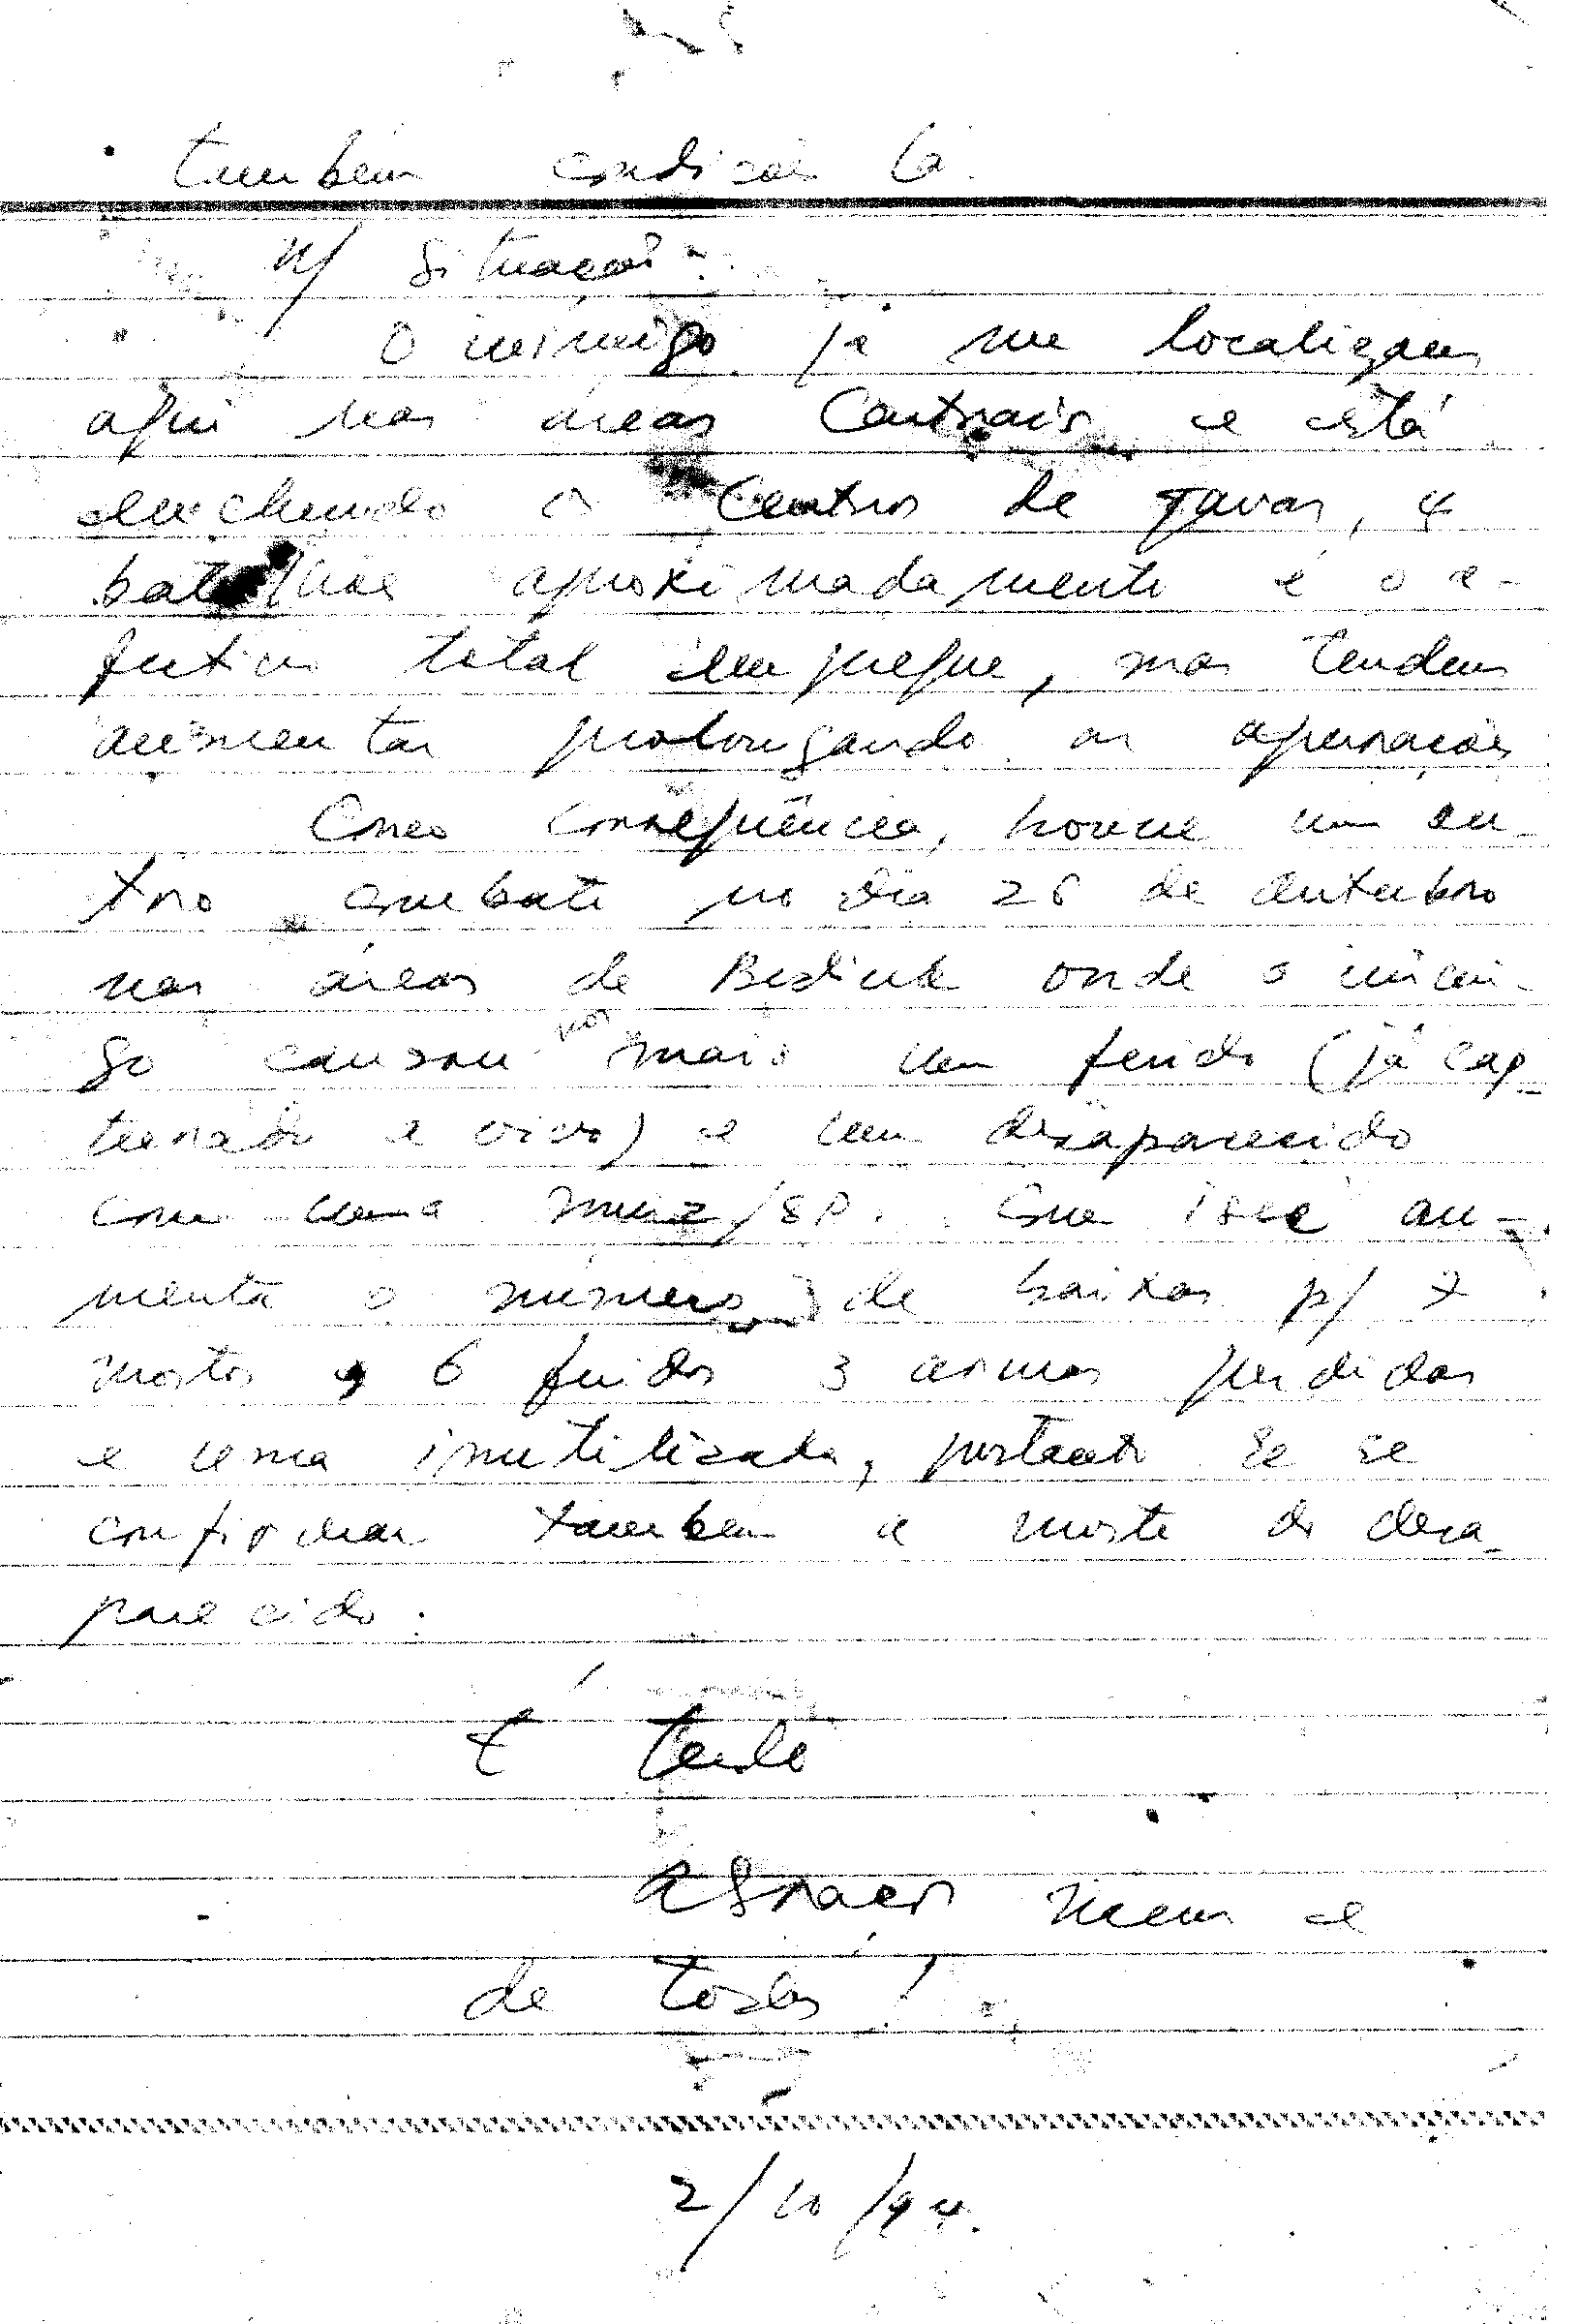 também condições lá.
N/ Situação:
O inimigo já me localizou
aqui nas áreas Centrais e está
enchendo o Centro de Tavar, 4
batalhões aproximadamente é o e-
fectivo total empregue, mas tendem
aumentar prolongando as operações
Como consequência, houve um ou-
tro combate no dia 26 de Outubro
nas áreas de onde o inimi-
go causou nos mais um ferido (já cap-
turado e vivo) e um desaparecido
com uma /SP. Com isso au-
menta o número de baixas p/ 7
mortos e 6 feridos 3 armas perdidas
e uma inutilizada, portanto se se
confirmar também a morte do desa-
parecido.
É tudo
Abraços meus e
de todos!
2/10/94.